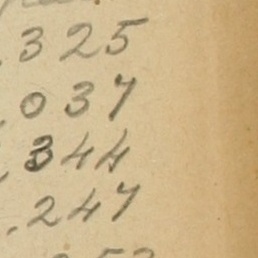 .325
.037
.344
.247